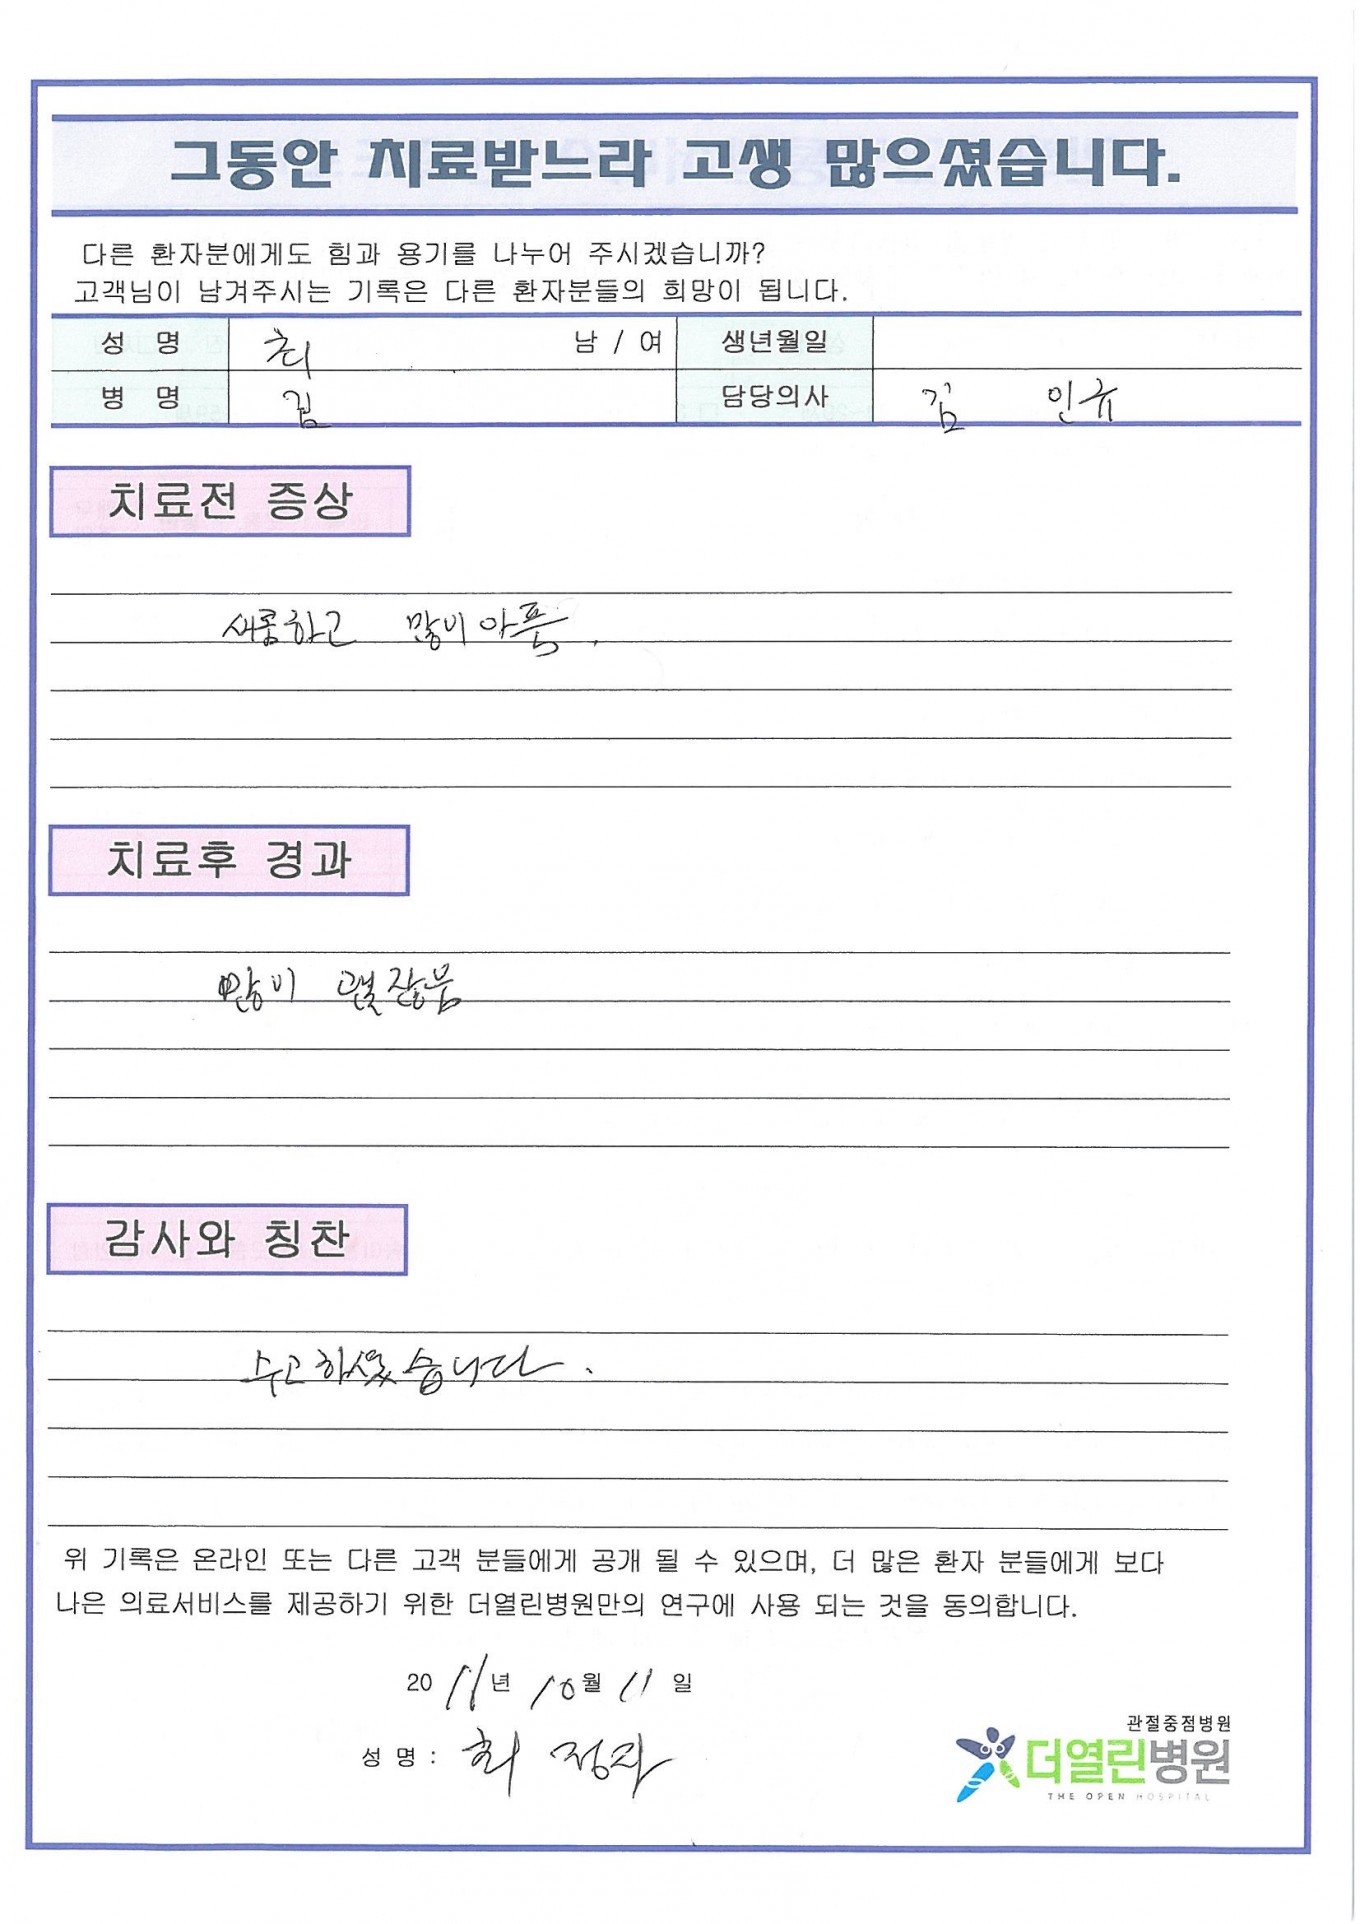 그동안 치료받느라 고생 많으셨습니다.
다른 환자분에게도 힘과 용기를 나누어 주시겠습니까?
고객님이 남겨주시는 기록은 다른 환자분들의 희망이 됩니다.
성 명 최 남 / 여 생년월일
병 명 김 담당의사 김 인규
치료전 증상
새콤하고 많이 아픔.
치료후 경과
많이 괜찮음
감사와 칭찬
수고하셨습니다.
위 기록은 온라인 또는 다른 고객 분들에게 공개 될 수 있으며, 더 많은 환자 분들에게 보다
나은 의료서비스를 제공하기 위한 더열린병원만의 연구에 사용 되는 것을 동의합니다.
20 년 10월 11 일
성 명 : 최 정자
관절중점병원
더열린병원
THE OPEN HOSPITAL